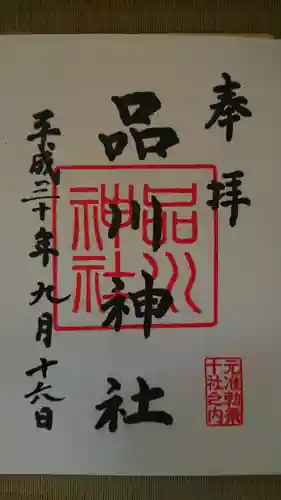 奉拝
品川神社
平成三十年九月十六日
品川神社
元准勅祭十社之内